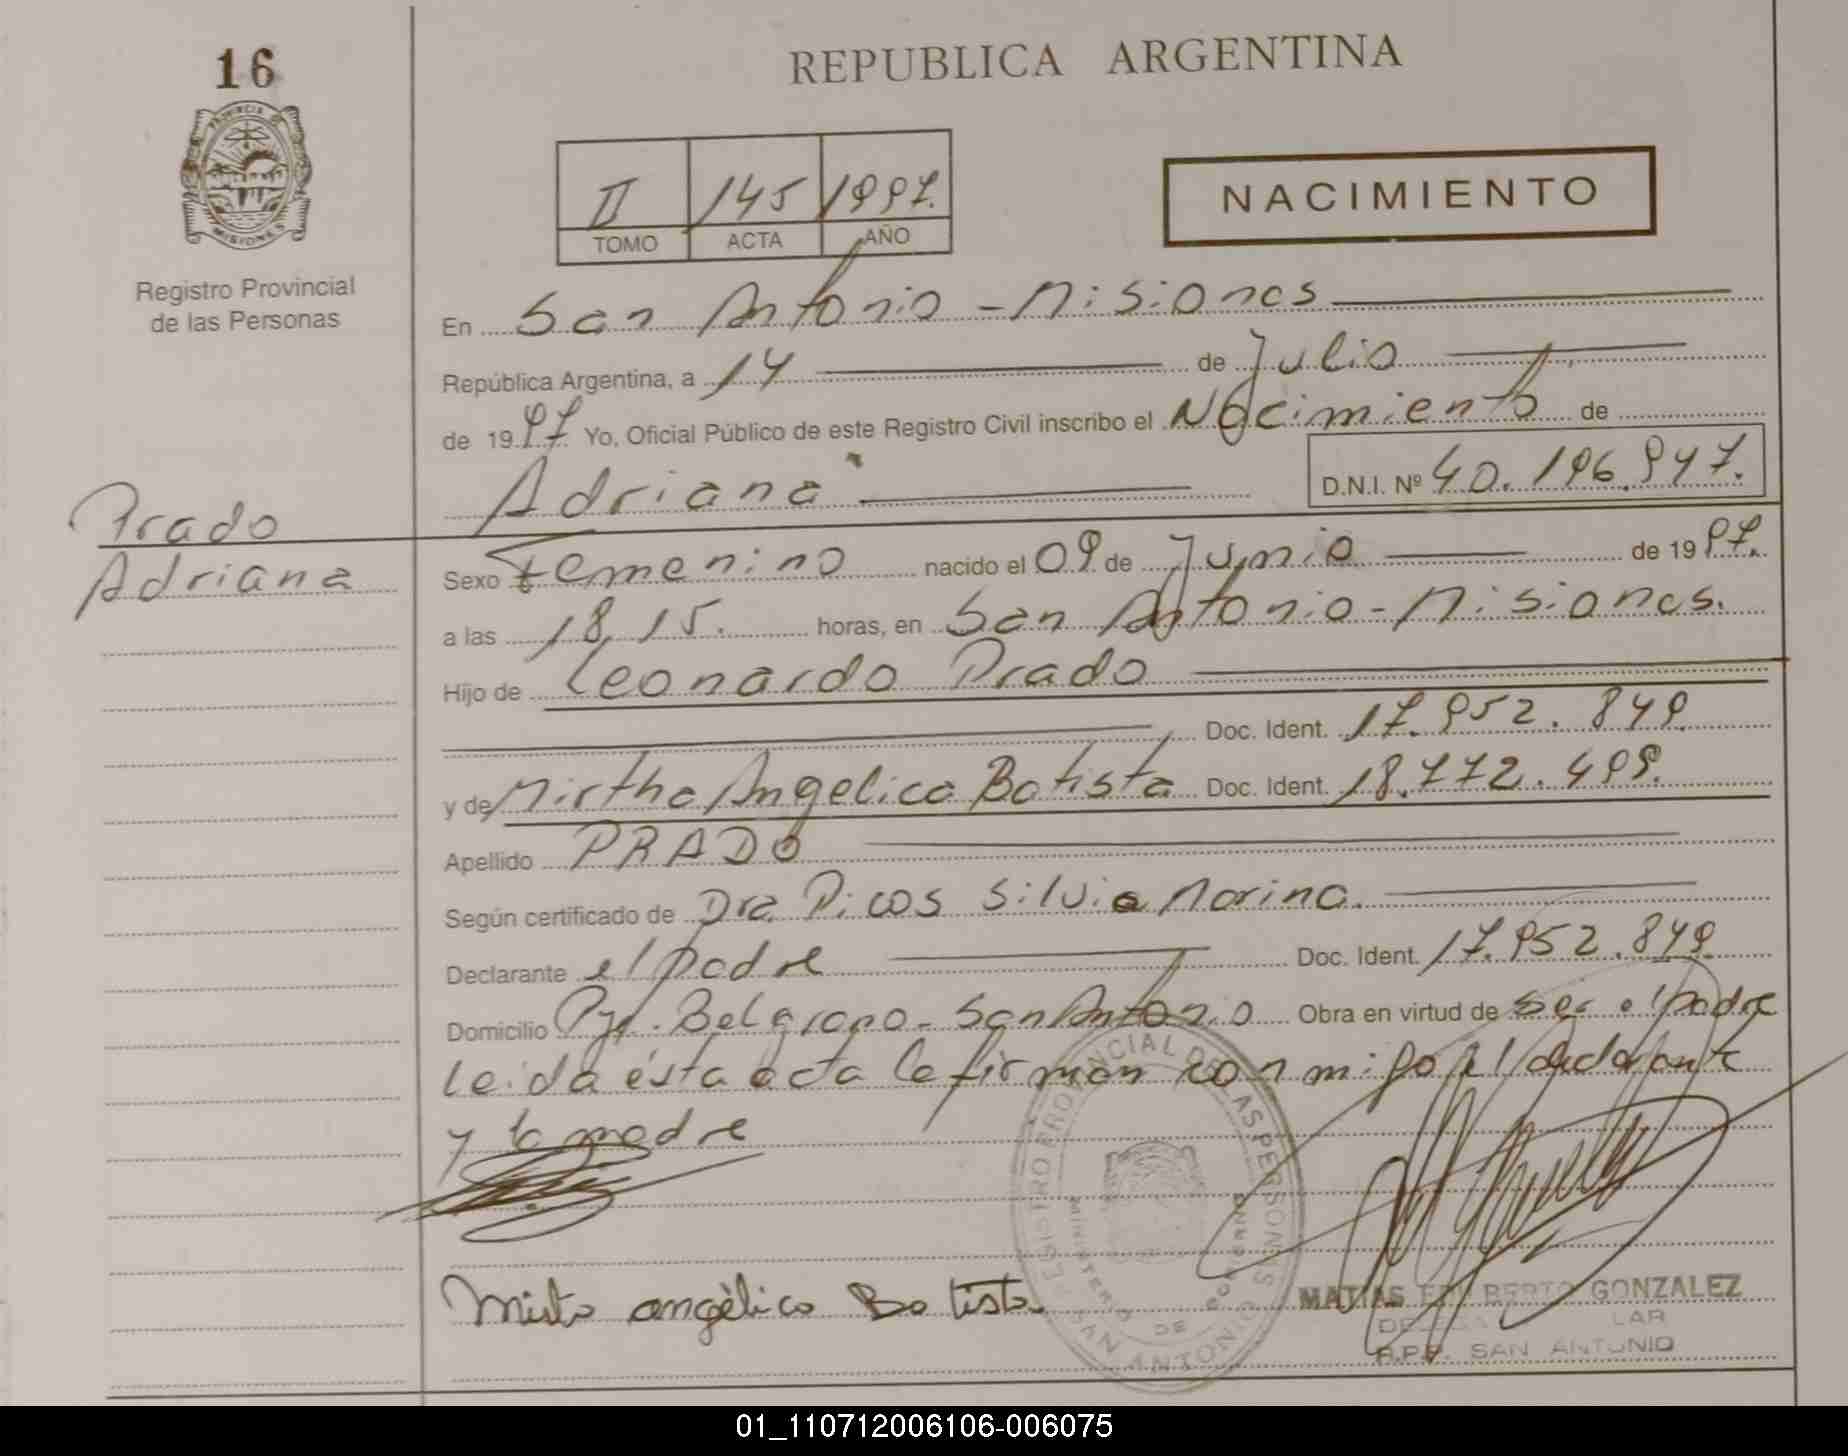 16
PROVINCIA DE
MISIONES
Registro Provincial
de las Personas
Prado
Adriana
REPUBLICA ARGENTINA
II 145 1997.
TOMO ACTA AÑO
NACIMIENTO
En San Antonio - Misiones
República Argentina, a 14 de Julio
de 1997 Yo, Oficial Público de este Registro Civil inscribo el Nacimiento de
Adriana D.N.I. Nº 40.196.947.
Sexo Femenino nacido el 09 de Junio de 1997.
a las 18,15. horas, en San Antonio - Misiones.
Hijo de Leonardo Prado
Doc. Ident. 17.952.849
y de Mirtha Angelica Batista Doc. Ident. 18.772.499.
Apellido PRADO
Según certificado de Dra Picos Silvia Marina.
Declarante el padre Doc. Ident. 17.952.849
Domicilio Pje. Belgrano - San Antonio Obra en virtud de ser el padre
leida ésta acta la firman con migo el declarante
y la madre
Mirta angélica Batista
REGISTRO PROVINCIAL DE LAS PERSONAS
MINISTERIO DE GOBIERNO
SAN ANTONIO
MATIAS GONZALEZ
R.P.P. SAN ANTONIO
01_110712006106-006075